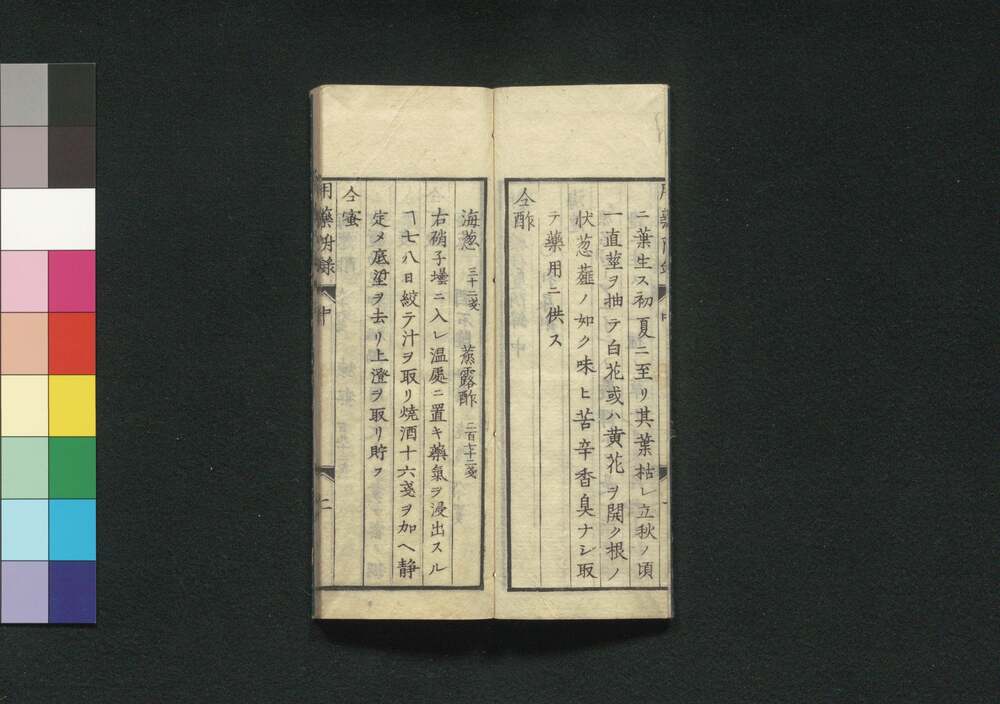 ニ葉生ス初夏ニ至リ其葉枯レ立秋ノ頃
一直莖ヲ抽テ白花或ハ黄花ヲ開ク根ノ
状葱薤ノ如ク味ヒ苦辛香臭ナシ取
テ藥用ニ供ス
仝酢
海葱 三十二戔 蒸露酢 二百七十二戔
右硝子壜ニ入レ温處ニ置キ藥氣ヲ浸出スル
ヿ七八日絞テ汁ヲ取リ焼酒十六戔ヲ加ヘ静
定メ底垽ヲ去リ上澄ヲ取リ貯フ
仝蜜
用藥附録 中 二